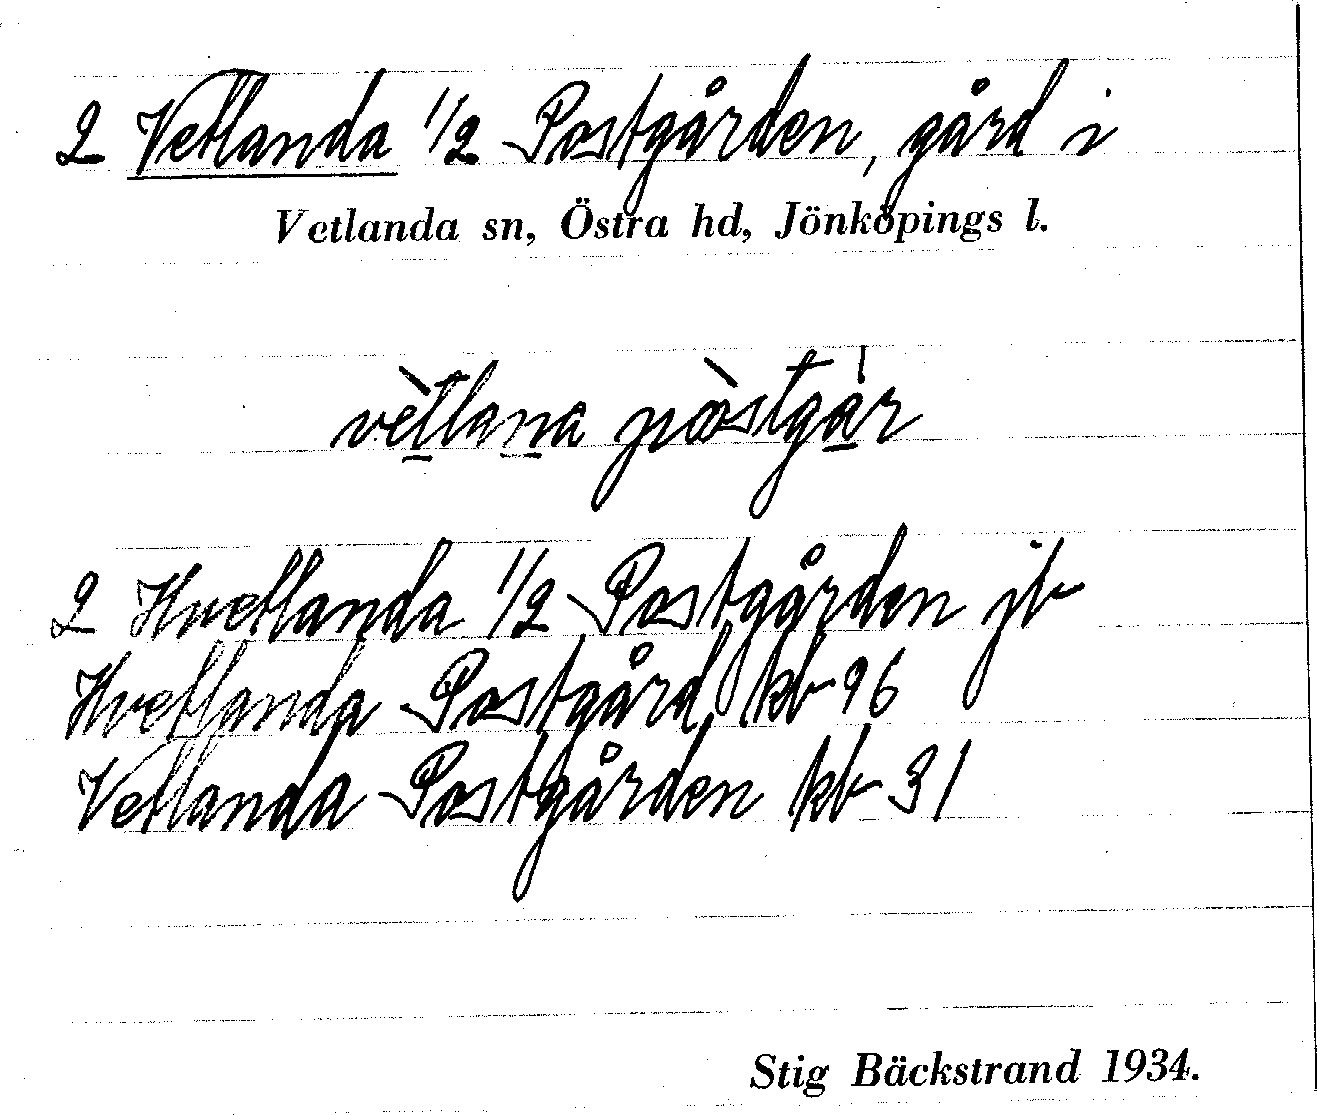 2 Vetlanda 1/2 Postgården, gård i
Vetlanda sn, Östra hd, Jönköpings l.
vètlana pòstgår
2 Hvetlanda 1/2 Postgården jb
Hvetlanda Postgård, kb 96
Vetlanda Postgården kb 31
Stig Bäckstrand 1934.